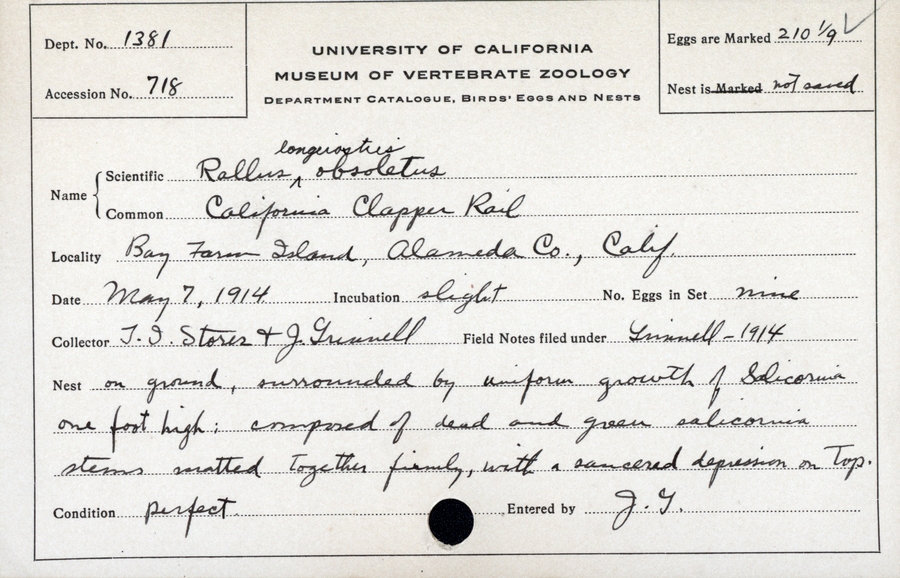 Dept. No. 1381
Accession No. 718
UNIVERSITY OF CALIFORNIA
MUSEUM OF VERTEBRATE ZOOLOGY
DEPARTMENT CATALOGUE, BIRDS' EGGS AND NESTS
Eggs are Marked 210 1/9 ✓
Nest is Marked not saved
longirostris
Name { Scientific Rallus ^ obsoletus
Common California Clapper Rail
Locality Bay Farm Island, Alameda Co., Calif.
Date May 7, 1914 Incubation slight No. Eggs in Set nine
Collector T. I. Storer & J. Grinnell Field Notes filed under Grinnell - 1914
Nest on ground, surrounded by uniform growth of Salicornia
one foot high; composed of dead and green salicornia
stems matted together firmly, with a saucered depression on top.
Condition perfect. Entered by J. G.